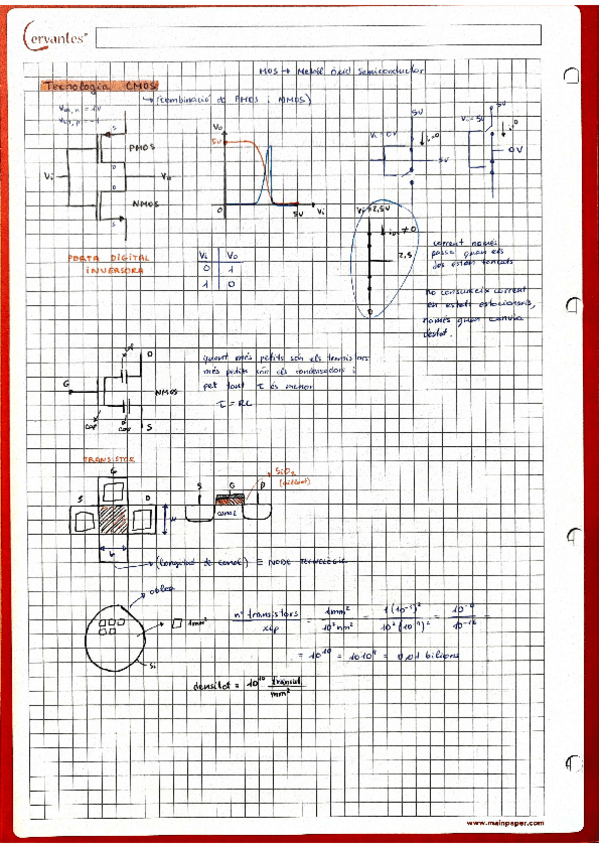 Cervantes
MOS → Metall òxid Semiconductor
Tecnologia CMOS
↳ (combinació de PMOS i NMOS)
PMOS
NMOS
Vi
Vo
S
D
D
S
Vo
5V
0
5V
Vi
Vi = 0V
5V
5V
Vi = 5V
5V
0V
Vi = 2,5V
≠ 0
2,5
0
corrent només
passa quan els
dos estan tancats
no consumeix corrent
en estats estacionaris,
només quan canvia
d'estat.
PORTA DIGITAL
INVERSORA
Vi Vo
0 1
1 0
G
D
NMOS
S
cap
quant més petits són els transistors
més petits són els condensadors i
per tant τ és menor
τ = RC
TRANSISTOR
G
S
D
W
L
S
G
D
SiO2
(aïllant)
canal
(longitud de canal) ≡ NODE TECNOLÒGIC
oblea
1mm²
Si
nº transistors / xip = 1mm² / 10²nm² = 1(10⁻³)² / 10²(10⁻⁹)² = 10⁻⁶ / 10⁻¹⁶ =
= 10¹⁰ = 10·10⁹ = 0,01 bilions
densitat = 10¹⁰ transist / mm²
www.mainpaper.com